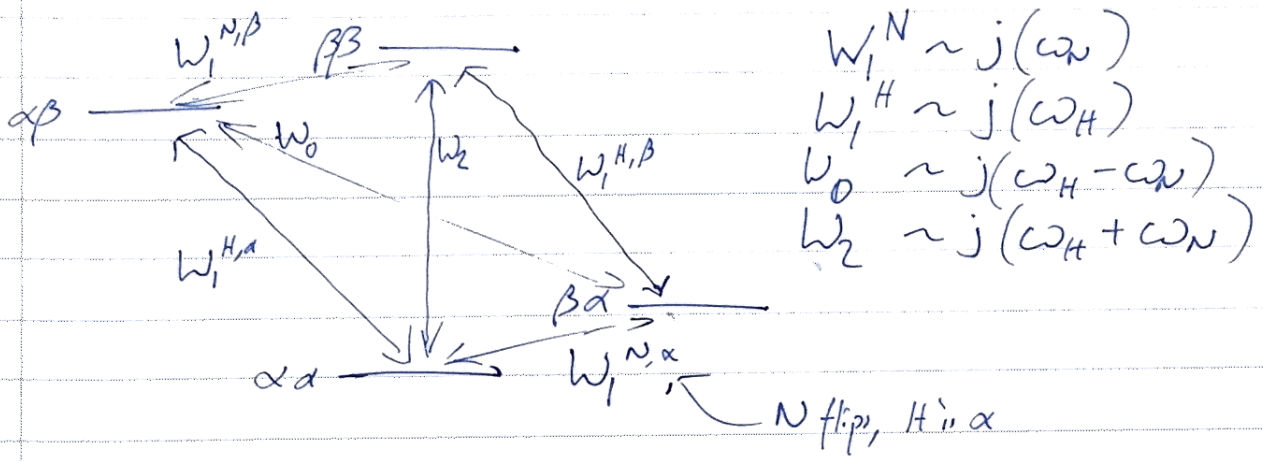 W₁^{N,β}
ββ
αβ
W₀
W₂
W₁^{H,β}
W₁^{H,α}
βα
αα
W₁^{N,α}
N flips, H is α
W₁^N ~ j(ω_N)
W₁^H ~ j(ω_H)
W₀ ~ j(ω_H - ω_N)
W₂ ~ j(ω_H + ω_N)